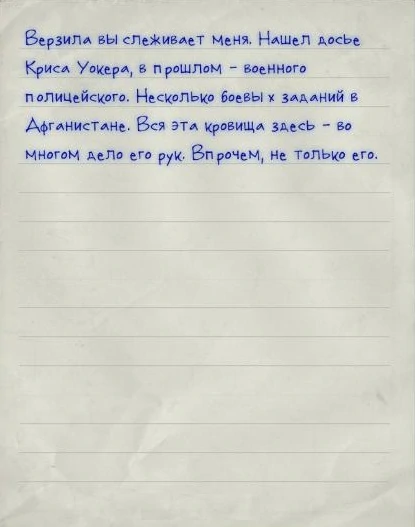 Верзила выслеживает меня. Нашел досье
Криса Уокера, в прошлом - военного
полицейского. Несколько боевых заданий в
Афганистане. Вся эта кровища здесь - во
многом дело его рук. Впрочем, не только его.